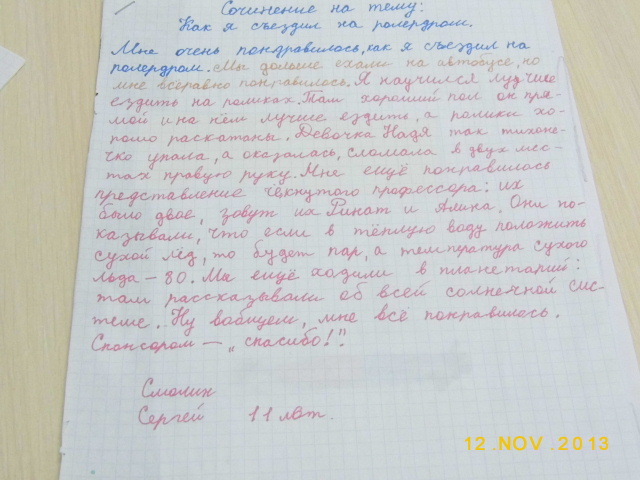 Сочинение на тему:
Как я съездил на ролердром.
Мне очень пондравилось, как я съездил на
ролердром. Мы дольше ехали на автобусе, но
мне всёравно понравилось. Я научился лудчше
ездить на роликах. Там хороший пол он пря-
мой и на нём лучше ездить, а ролики хо-
рошо раскатаны. Девочка Надя так тихоне-
чко упала, а оказалась, сломала в двух мес-
тах правую руку. Мне ещё понравилось
представление чёкнутого профессора: их
было двое, зовут их Ринат и Алина. Они по-
казывали, что если в тёплую воду положить
сухой лёд, то будет пар, а температура сухого
льда – 80. Мы ещё ходили в планетарий:
там рассказывали об всей солнечной сис-
теме. Ну вобщем, мне всё понравилось.
Спонсором – „спасибо!".
Смолин
Сергей 11 лет.
12.NOV.2013